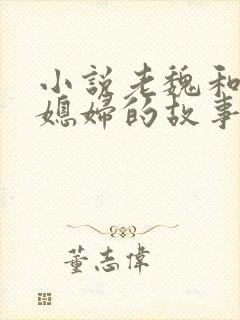 小説老魏和
媳婦的故事
董志偉